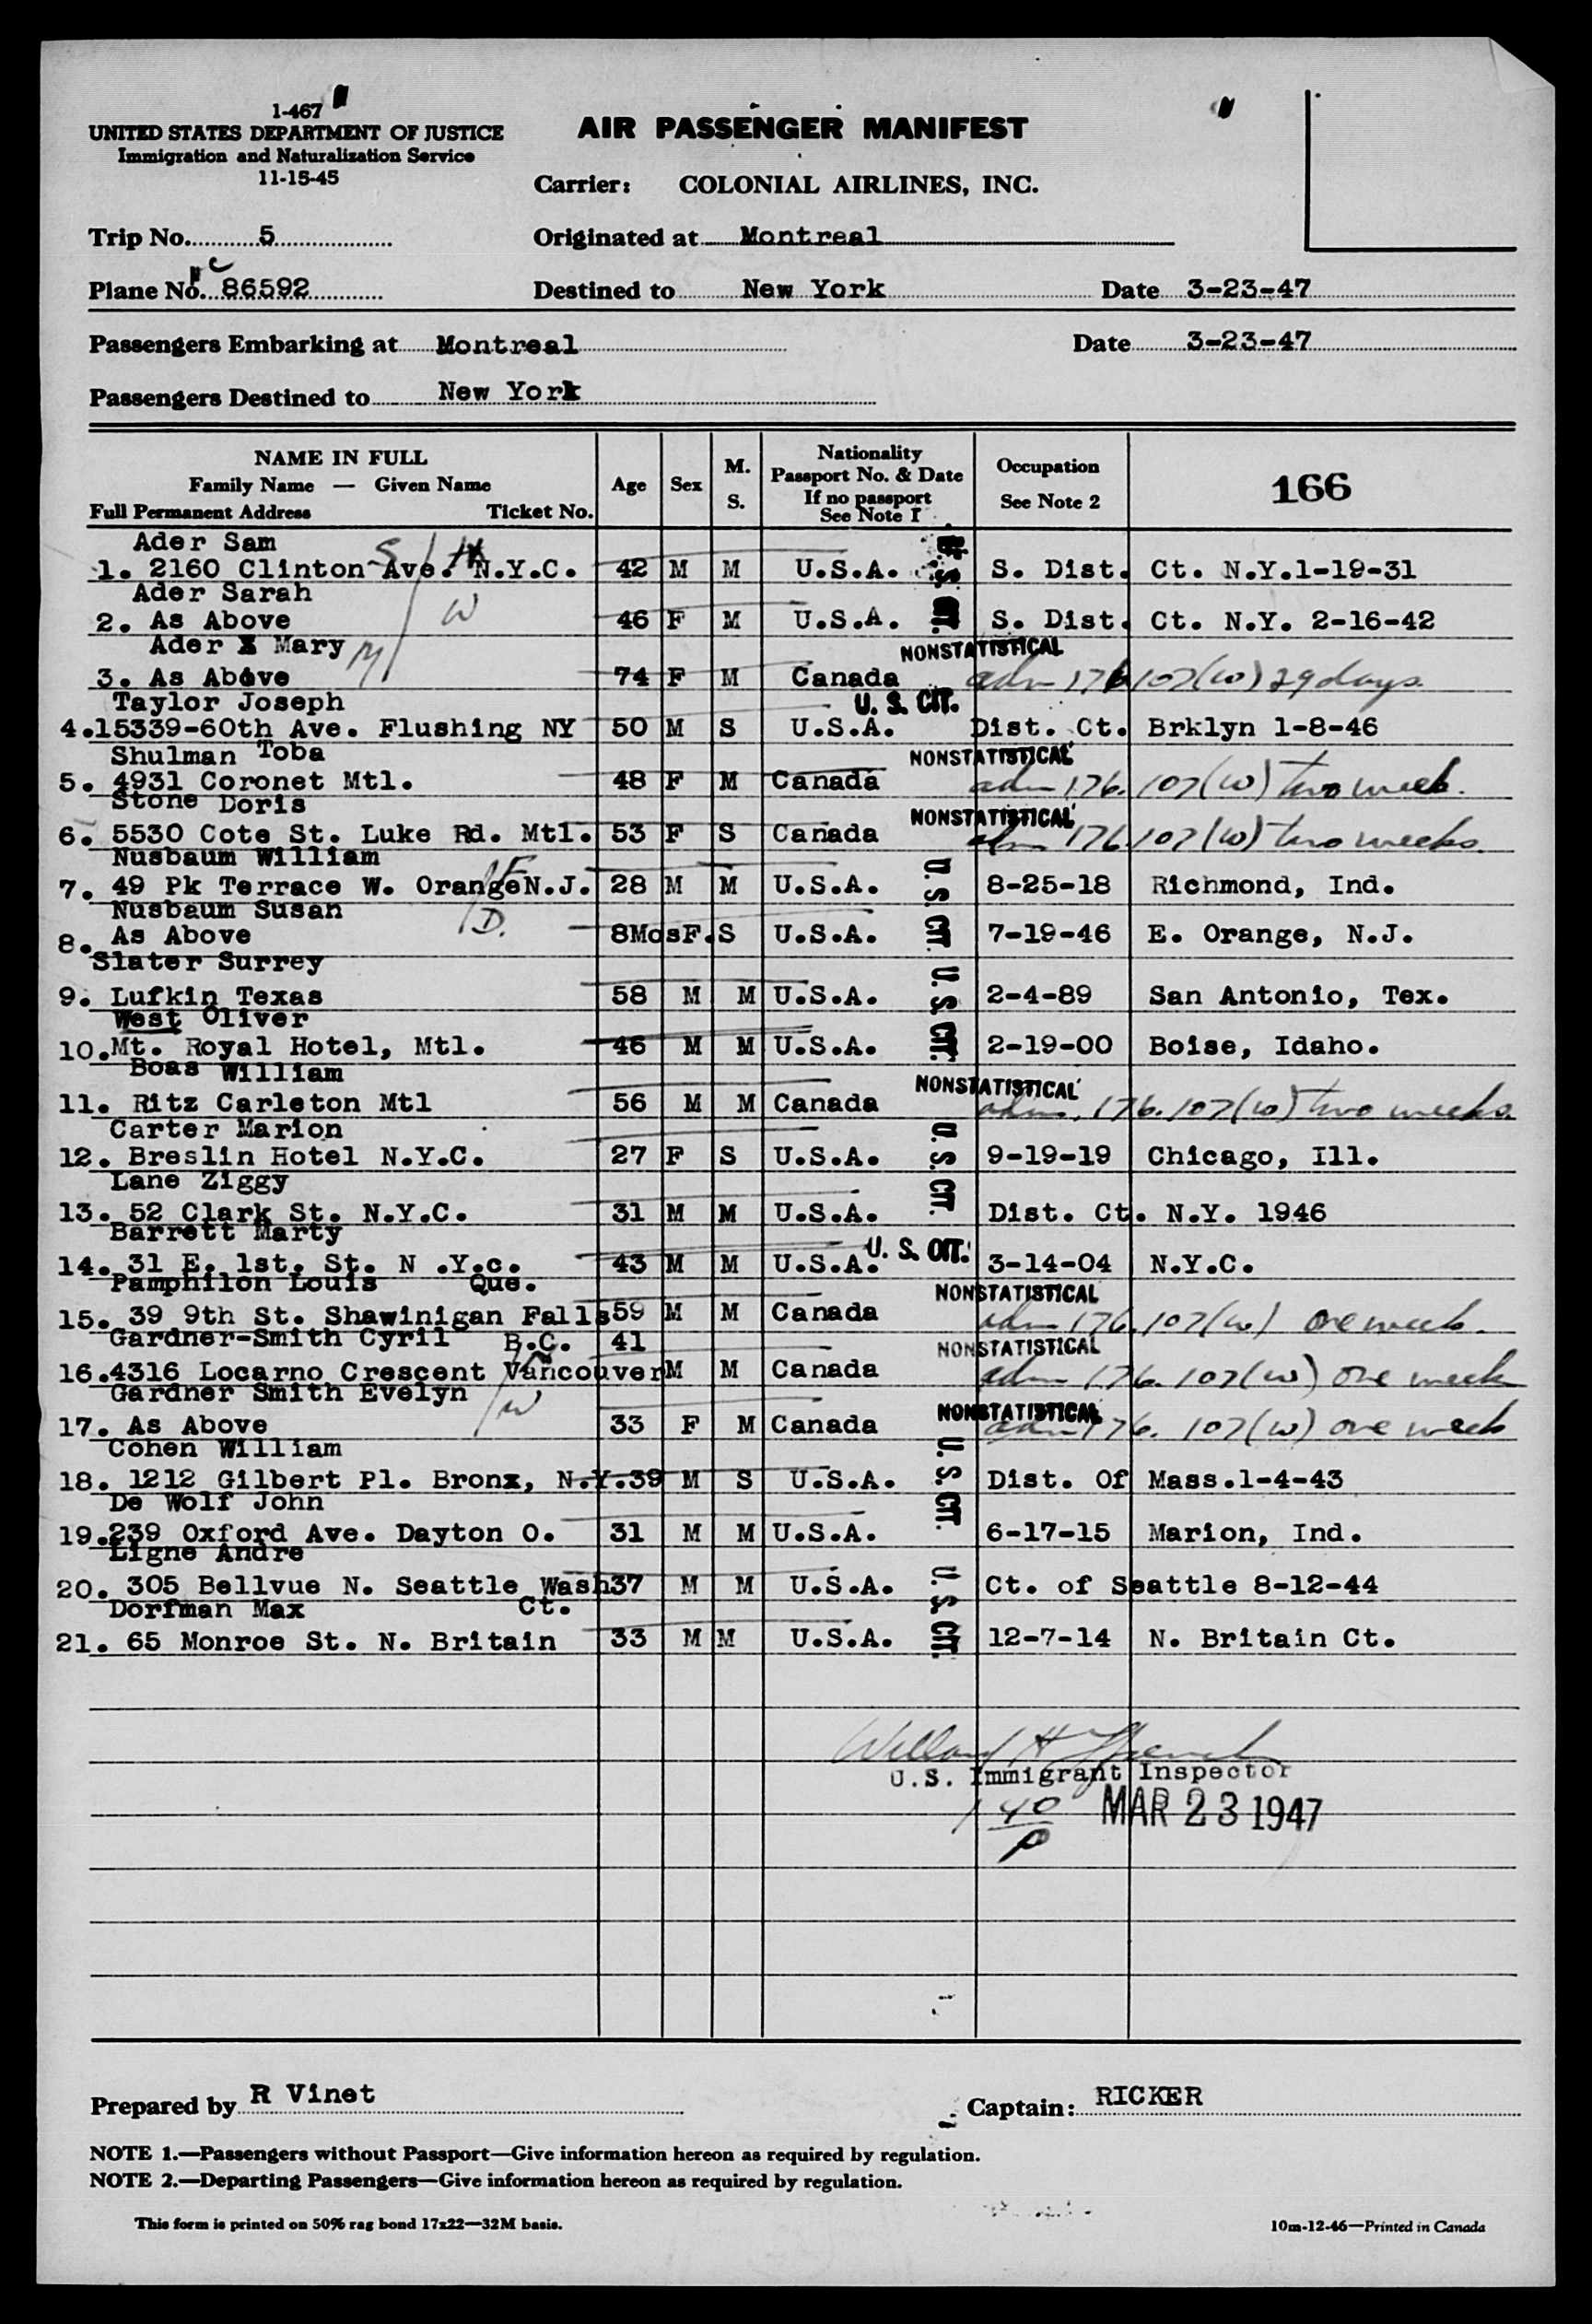 1-467
UNITED STATES DEPARTMENT OF JUSTICE
Immigration and Naturalization Service
11-15-45
AIR PASSENGER MANIFEST
Carrier: COLONIAL AIRLINES, INC.
Trip No. 5 Originated at Montreal
Plane No. NC 86592 Destined to New York Date 3-23-47
Passengers Embarking at Montreal Date 3-23-47
Passengers Destined to New York
NAME IN FULL
Family Name — Given Name
Full Permanent Address Ticket No.
Age
Sex
M.
S.
Nationality
Passport No. & Date
If no passport
See Note 1
Occupation
See Note 2
166
Ader Sam
1. 2160 Clinton Ave. N.Y.C. 42 M M U.S.A. U.S. CIT. S. Dist. Ct. N.Y.1-19-31
Ader Sarah W
2. As Above 46 F M U.S.A. S. Dist. Ct. N.Y. 2-16-42
Ader X Mary M NONSTATISTICAL
3. As Above 74 F M Canada adm 176.107(w) 29 days.
Taylor Joseph U. S. CIT.
4.15339-60th Ave. Flushing NY 50 M S U.S.A. Dist. Ct. Brklyn 1-8-46
Shulman Toba NONSTATISTICAL
5. 4931 Coronet Mtl. 48 F M Canada adm 176.107(w) two week.
Stone Doris NONSTATISTICAL
6. 5530 Cote St. Luke Rd. Mtl. 53 F S Canada adm 176.107(w) two weeks.
Nusbaum William F
7. 49 Pk Terrace W. OrangeN.J. 28 M M U.S.A. U. S. CIT. 8-25-18 Richmond, Ind.
Nusbaum Susan D.
8. As Above 8MosF.S U.S.A. 7-19-46 E. Orange, N.J.
Slater Surrey
9. Lufkin Texas 58 M M U.S.A. U. S. CIT. 2-4-89 San Antonio, Tex.
West Oliver
10.Mt. Royal Hotel, Mtl. 46 M M U.S.A. 2-19-00 Boise, Idaho.
Boas William NONSTATISTICAL
11. Ritz Carleton Mtl 56 M M Canada adm. 176.107(w) two weeks.
Carter Marion
12. Breslin Hotel N.Y.C. 27 F S U.S.A. U. S. CIT. 9-19-19 Chicago, Ill.
Lane Ziggy
13. 52 Clark St. N.Y.C. 31 M M U.S.A. Dist. Ct. N.Y. 1946
Barrett Marty U. S. CIT.
14. 31 E. 1st. St. N .Y.c. 43 M M U.S.A. 3-14-04 N.Y.C.
Pamphilon Louis Que. NONSTATISTICAL
15. 39 9th St. Shawinigan Falls59 M M Canada adm 176.107(w) one week.
Gardner-Smith Cyril B.C. 41 NONSTATISTICAL
16.4316 Locarno Crescent VancouverM M Canada adm 176.107(w) one week
Gardner Smith Evelyn W NONSTATISTICAL
17. As Above 33 F M Canada adm 176.107(w) one week
Cohen William
18. 1212 Gilbert Pl. Bronx, N.Y.39 M S U.S.A. U. S. CIT. Dist. Of Mass.1-4-43
De Wolf John
19.239 Oxford Ave. Dayton O. 31 M M U.S.A. 6-17-15 Marion, Ind.
Ligne Andre
20. 305 Bellvue N. Seattle Wash37 M M U.S.A. U. S. CIT. Ct. of Seattle 8-12-44
Dorfman Max Ct.
21. 65 Monroe St. N. Britain 33 M M U.S.A. 12-7-14 N. Britain Ct.
U.S. Immigrant Inspector
1 40 p MAR 23 1947
Prepared by R Vinet Captain: RICKER
NOTE 1.—Passengers without Passport—Give information hereon as required by regulation.
NOTE 2.—Departing Passengers—Give information hereon as required by regulation.
This form is printed on 50% rag bond 17x22—32M basis. 10m-12-46—Printed in Canada